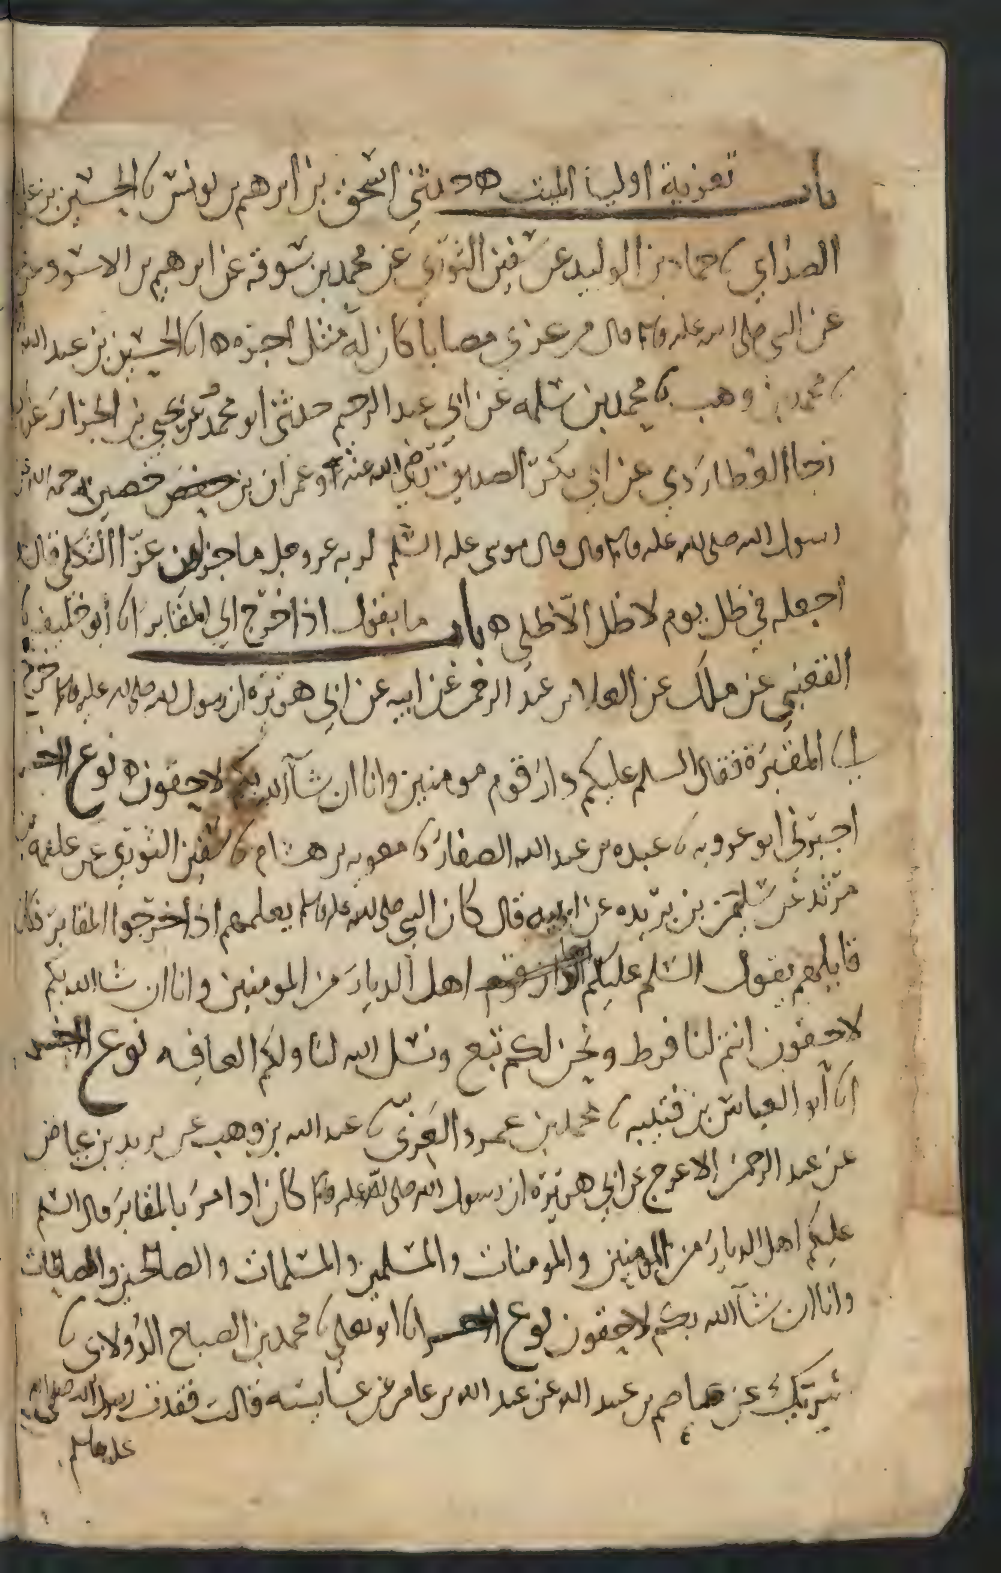 باب تعزية اوليا الميت ه حدثني اسحق بن ابرهيم بن يونس نا الحسين بن علي
الصدايي نا حماد بن الوليد عن سفين الثوري عن محمد بن سوقه عن ابرهيم بن الاسود
عن النبي صلى الله عليه وسلم قال من عزي مصابا كان له مثل اجره ه انا الحسين بن عبد الله
نا محمد بن وهب نا محمد بن سلمه عن ابي عبد الرحيم حدثني ابو محمد عن يحيى بن الجزار عن
رجا العطاردي عن ابي بكر الصديق رضي الله عنه وعمران بن حصين رحمه الله
رسول الله صلى الله عليه وسلم قال قال موسى عليه السلم لربه عز وجل ما جزا من عزا الثكلى قال
اجعله في ظل يوم لا ظل الا ظلي ه باب ما يقول اذا خرج الي المقابر انا ابو خليفه نا
القعنبي عن ملك عن العلا بن عبد الرحمن عن ابيه عن ابي هريره ان رسول الله صلى الله عليه وسلم خرج
الى المقبرة فقال السلم عليكم دار قوم مومنين وانا ان شا الله بكم لاحقون ه نوع اخر
اخبرني ابو عروبه نا عبده بن عبد الله الصفار نا معويه بن هشام نا سفين الثوري عن علقمه بن
مرثد عن سليمن بن بريده عن ابيه قال كان النبي صلى الله عليه وسلم يعلمهم اذا خرجوا المقابر فكان
قايلهم يقول السلم عليكم اهل الديار من المومنين وانا ان شا الله بكم
لاحقون انتم لنا فرط ونحن لكم تبع ونسل الله لنا ولكم العافيه نوع اخر
انا ابو العباس بن قتيبه نا محمد بن عمرو الغزي نا عبد الله بن وهب عن يزيد بن عياض
عن عبد الرحمن الاعرج عن ابي هريرة ان رسول الله صلى الله عليه وسلم كان اذا مر بالمقابر قال السلم
عليكم اهل الديار من المومنين والمومنات والمسلمين والمسلمات والصالحين والصالحات
وانا ان شا الله بكم لاحقون نوع اخر انا ابو يعلى نا محمد بن الصباح الدولابي نا
شريك عن عاصم بن عبد الله عن عبد الله بن عامر عن عايشه قالت فقدت رسول الله صلى الله
عليه وسلم